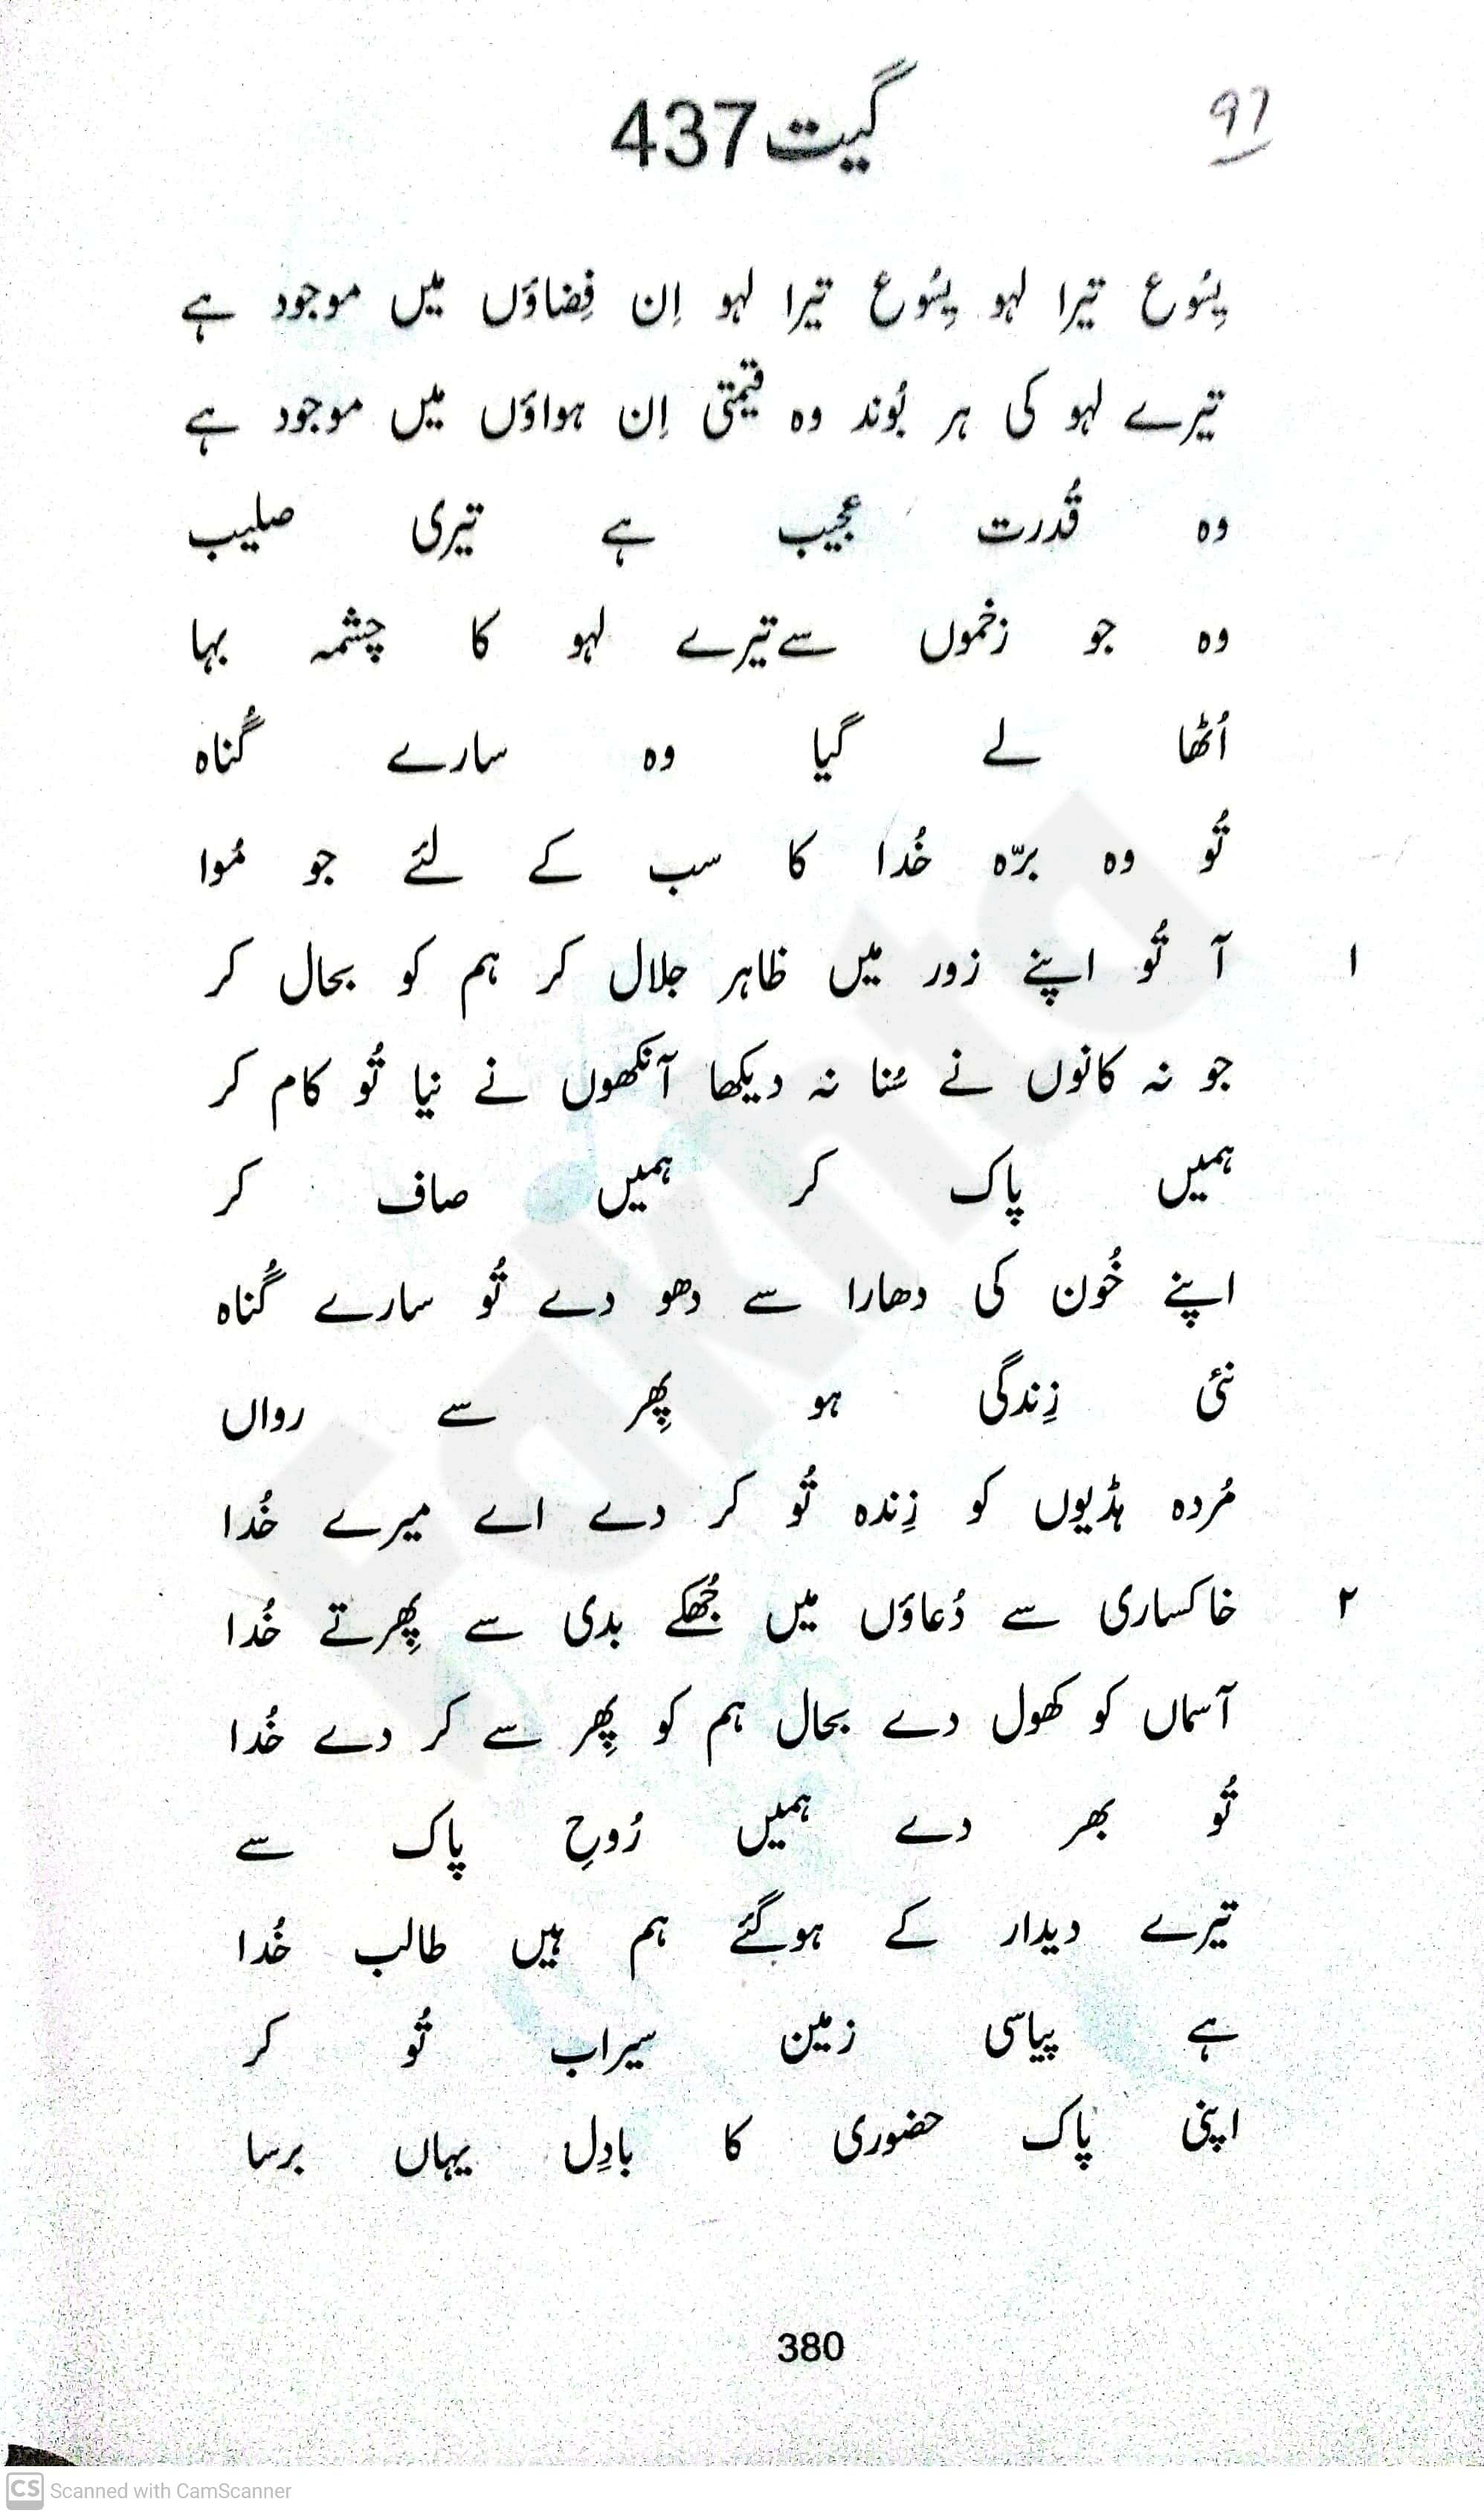 97
گیت 437
یِسُوع تیرا لہو یِسُوع تیرا لہو اِن فِضاؤں میں موجود ہے
تیرے لہو کی ہر بُوند وہ قیمتی اِن ہواؤں میں موجود ہے
وہ قُدرت عجیب ہے تیری صلیب
وہ جو زخموں سے تیرے لہو کا چشمہ بہا
اُٹھا لے گیا وہ سارے گُناہ
تُو وہ برّہ خُدا کا سب کے لئے جو مُوا
۱ آ تُو اپنے زور میں ظاہر جلال کر ہم کو بحال کر
جو نہ کانوں نے سُنا نہ دیکھا آنکھوں نے نیا تُو کام کر
ہمیں پاک کر ہمیں صاف کر
اپنے خُون کی دھارا سے دھو دے تُو سارے گُناہ
نئی زِندگی ہو پِھر سے رواں
مُردہ ہڈیوں کو زِندہ تُو کر دے اے میرے خُدا
۲ خاکساری سے دُعاؤں میں جُھکے بدی سے پِھرتے خُدا
آسماں کو کھول دے بحال ہم کو پِھر سے کر دے خُدا
تُو بھر دے ہمیں رُوحِ پاک سے
تیرے دیدار کے ہوگئے ہم ہیں طالب خُدا
ہے پیاسی زمین سیراب تُو کر
اپنی پاک حضوری کا بادِل یہاں برسا
380
CS Scanned with CamScanner
Fakhta